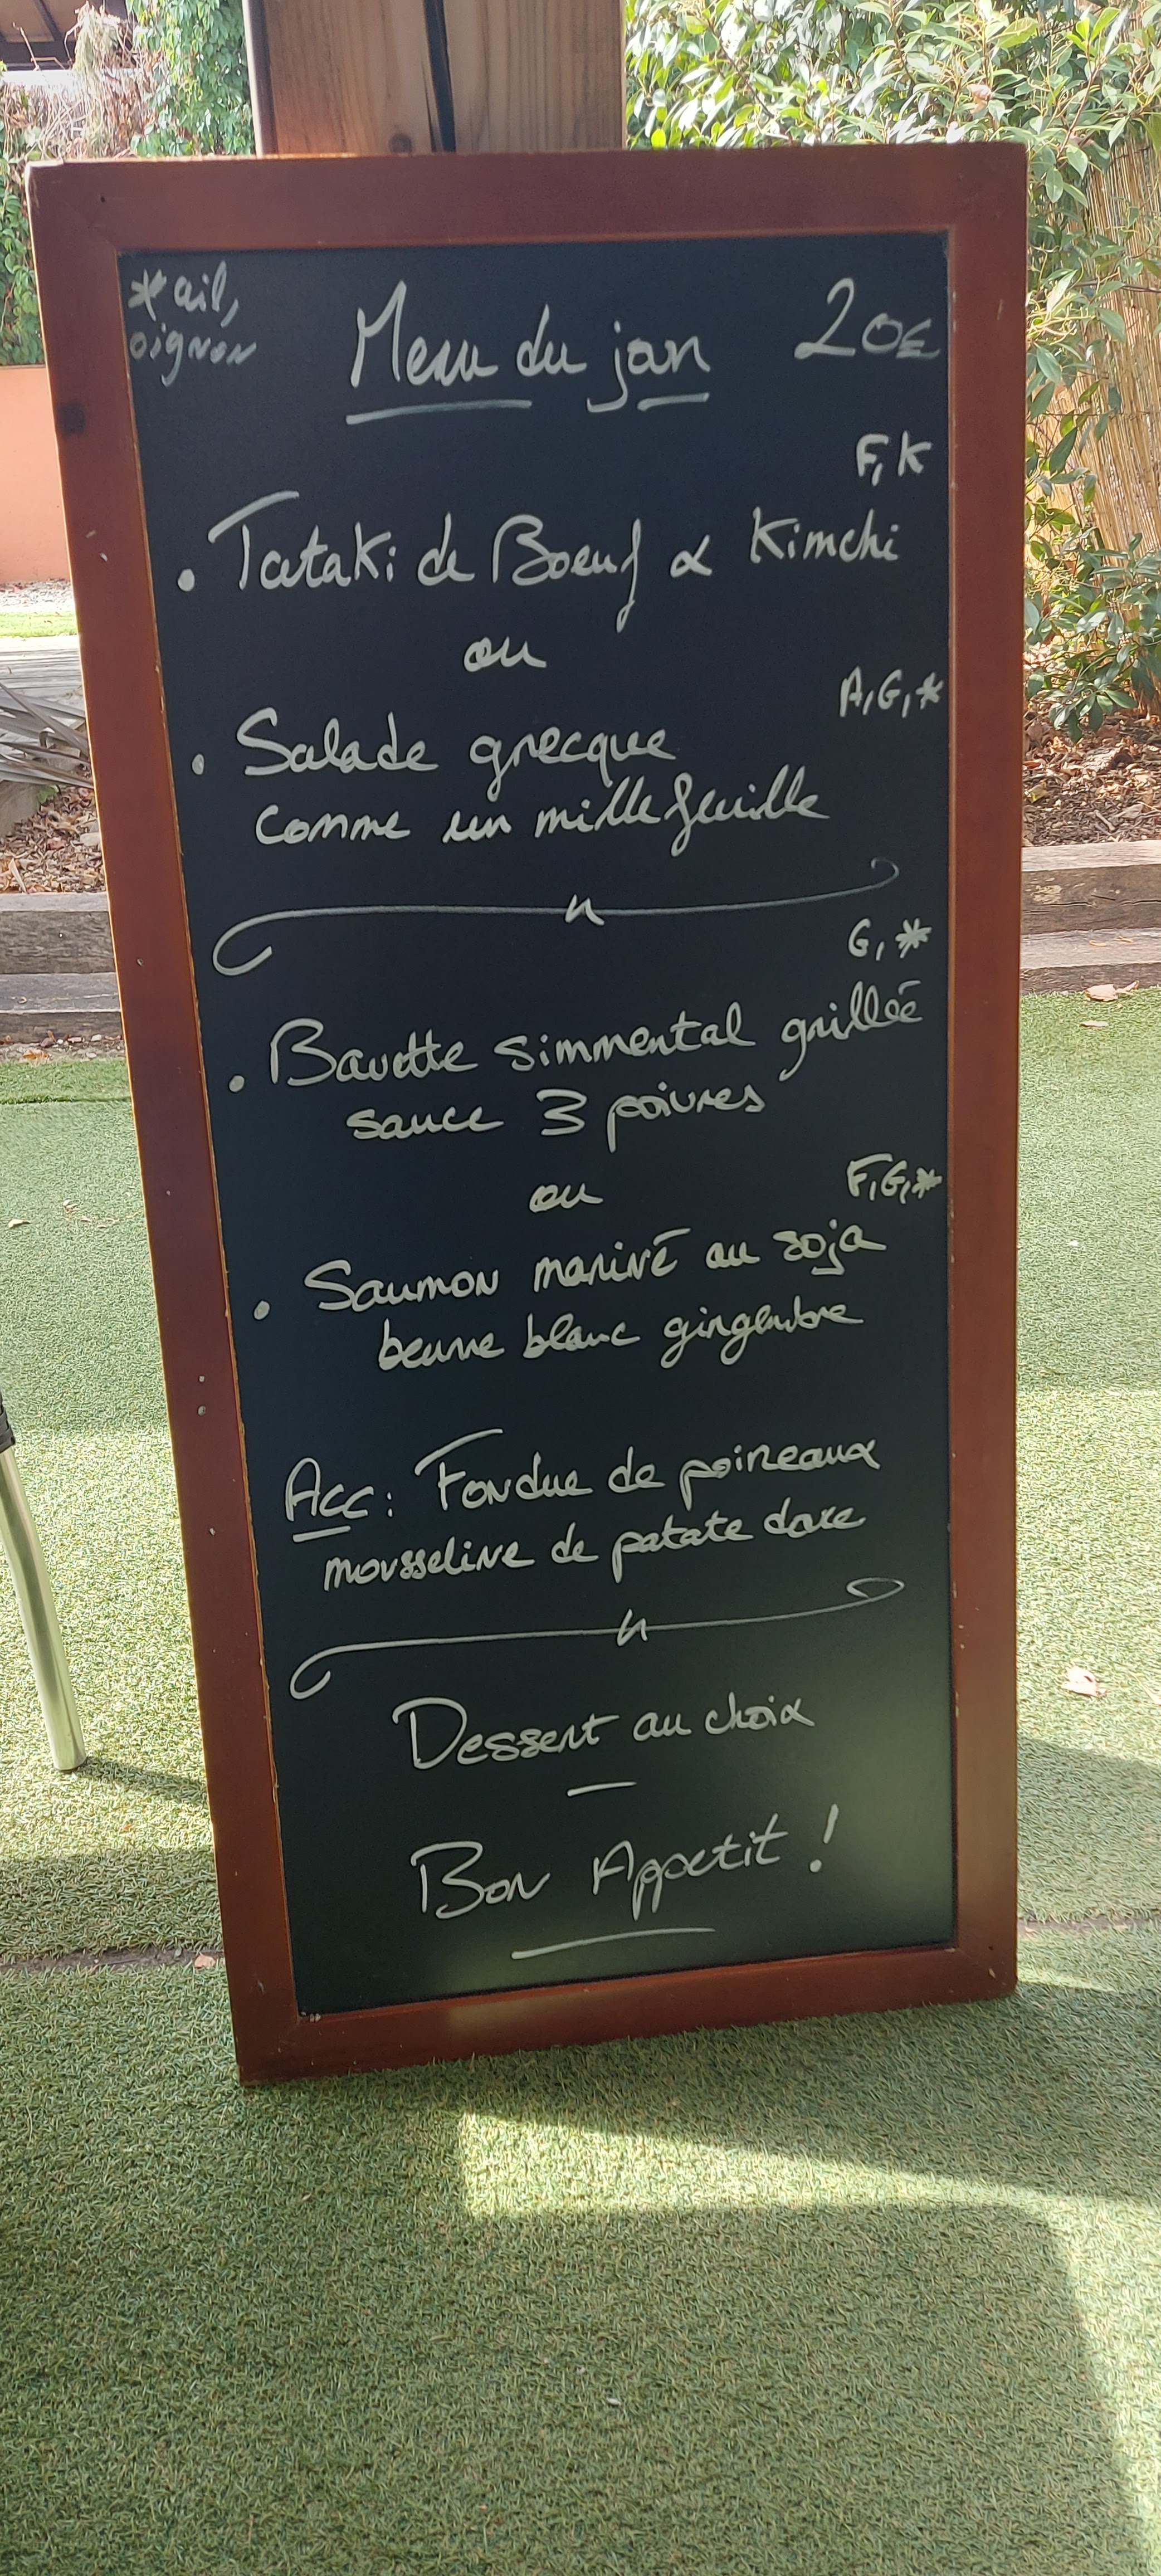 *ail,
oignon
Menu du jan 20€
F, K
• Tataki de Boeuf & Kimchi
ou
A, G, *
• Salade grecque
comme un millefeuille
G, *
• Bavette simmental grillée
sauce 3 poivres
ou
F, G, *
• Saumon mariné au soja
beurre blanc gingembre
Acc : Fondue de poireaux
mousseline de patate doxe
Dessert au choix
Bon Appetit !